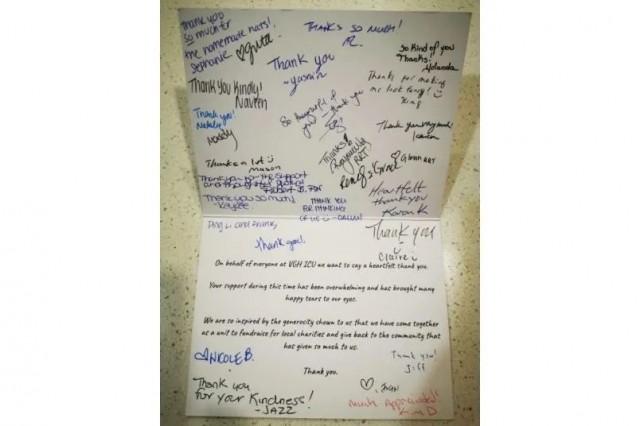 Thank you
so much for
the homemade hats!
Stephanie.
THANKS SO MUCH!
Thank you
~yasmin
So kind of you
Thanks!
Yolanda
Thank You Kindly!
Naveen
Thanks for making
me look fancy!
King
Thank you!
Natalie
Maddy
So thoughtful of
you! Thank you
Thank you very much!
Thanks
RT
Thanks a lot
mason
Thank you for the support
RN
Grace
Gwen RRT
Heartfelt
thank you
Karan K
Thank you so much!
- Kaylee
THANK YOU
FOR THINKING
OF US - DALLAS!
Thank you!
Thank you
Claire
On behalf of everyone at VGH ICU we want to say a heartfelt thank you.
Your support during this time has been overwhelming and has brought many
happy tears to our eyes.
We are so inspired by the generosity shown to us that we have come together
as a unit to fundraise for local charities and give back to the community that
has given so much to us.
NICOLE B.
Thank you.
Thank you!
Jiff
Thank you
for your Kindness!
-JAZZ
Much Appreciated!
Kim D